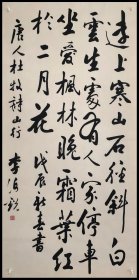 遠上寒山石徑斜白
雲生處有人家停車
坐愛楓林晚霜葉紅
於二月花 戊辰秋春書
唐人杜牧詩山行 李